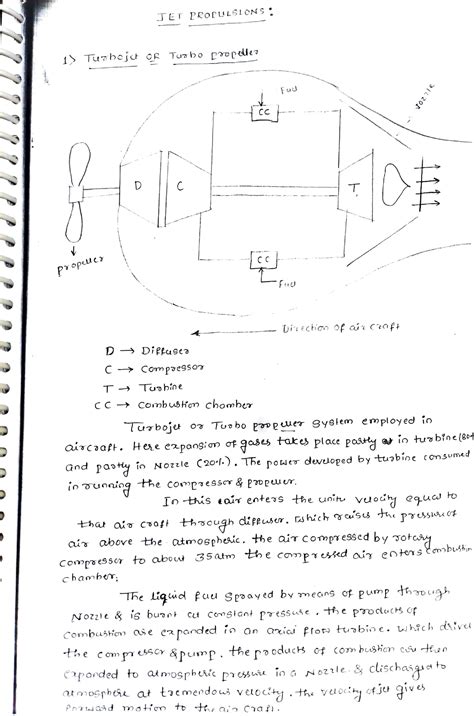 JET PROPULSIONS:
1) Turbojet OR Turbo propeller
Fuel
CC
Nozzle
D
C
T
propeller
CC
Fuel
Direction of air craft
D → Diffuser
C → Compressor
T → Turbine
CC → Combustion chamber
Turbojet or Turbo propeller System employed in
aircraft. Here expansion of gases takes place partly in turbine (80%
and partly in Nozzle (20%). The power developed by turbine consumed
in running the compressor & propeller.
In this air enters the unit velocity equal to
that air craft through diffuser. which raises the pressure of
air above the atmospheric. the air compressed by rotary
compressor to about 35atm the compressed air enters combustion
chamber;
The liquid fuel sprayed by means of pump through
Nozzle & is burnt at constant pressure. the products of
combustion are expanded in an axial flow turbine. which drives
the compressor & pump. the products of combustion are then
expanded to atmospheric pressure in a Nozzle & discharge to
atmosphere at tremendous velocity. the velocity of jet gives
forward motion to the air craft.